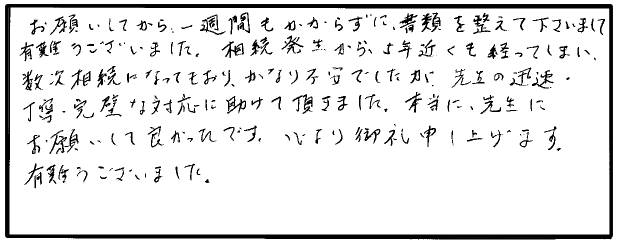 お願いしてから、一週間もかからずに、書類を整えて下さいまして
有難うございました。相続発生から、5年近くも経ってしまい、
数次相続になってもおり、かなり不安でしたが、先生の迅速・
丁寧・完璧な対応に助けて頂きました。本当に、先生に
お願いして良かったです。心より御礼申し上げます。
有難うございました。